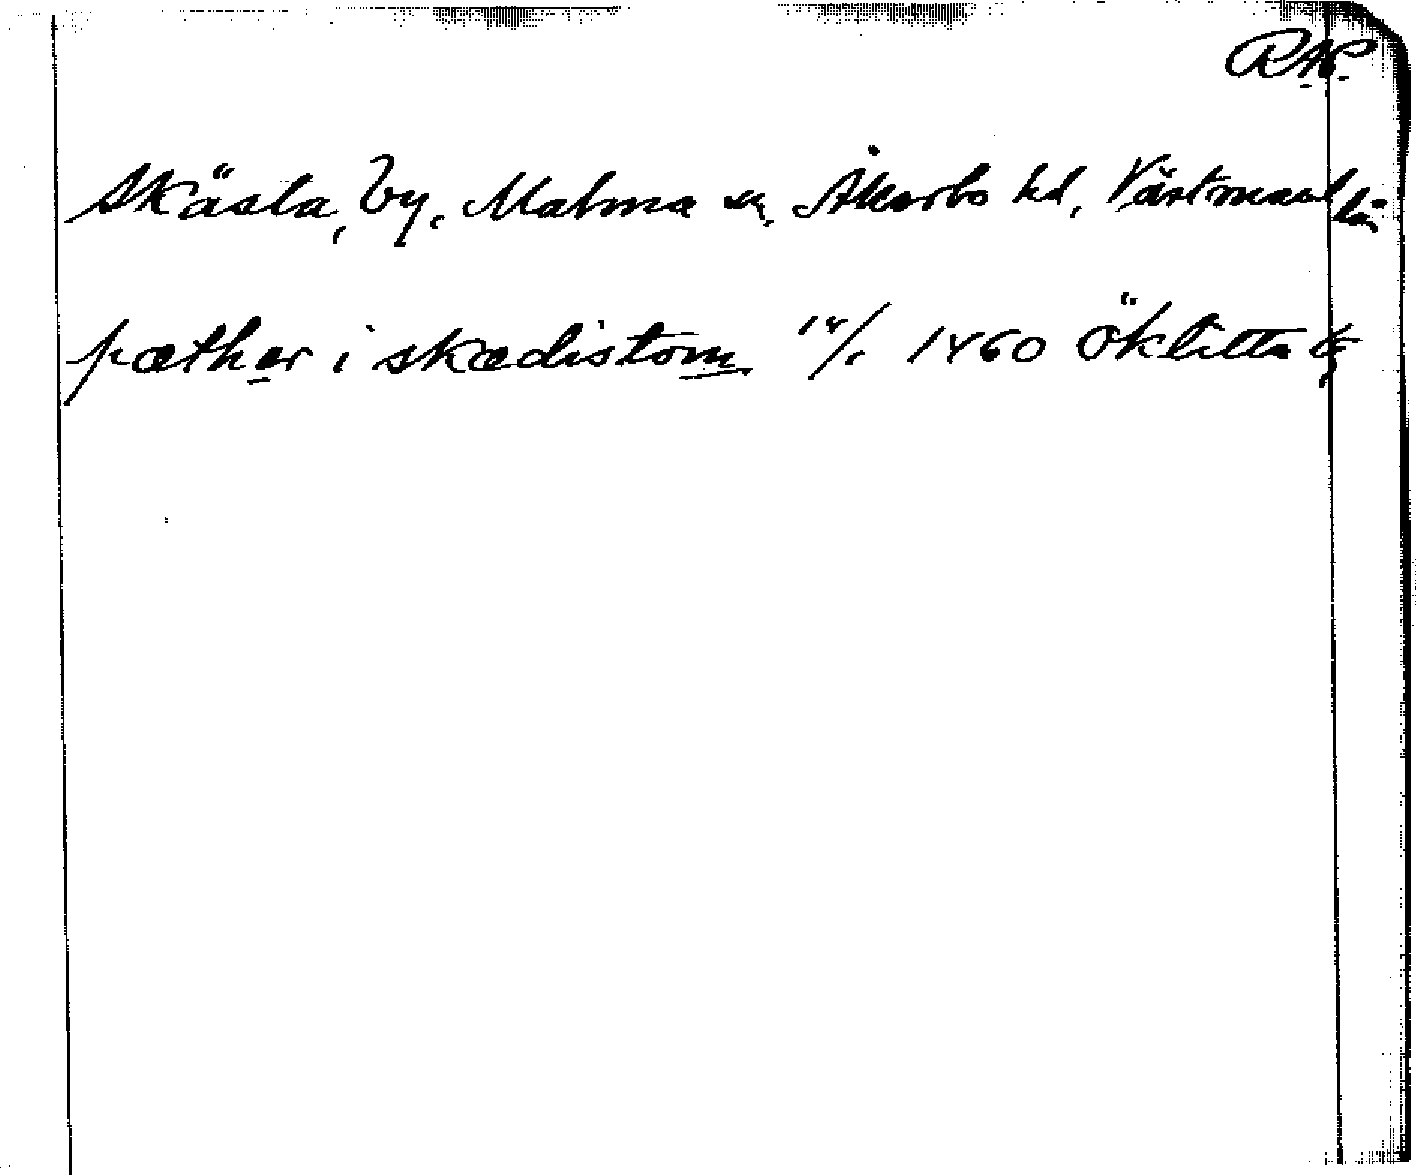 RAP.
Skästa, by, Malma sn, Åkerbo hd, Västmanl län
pæther i skædistom 14/1 1460 Öklitta